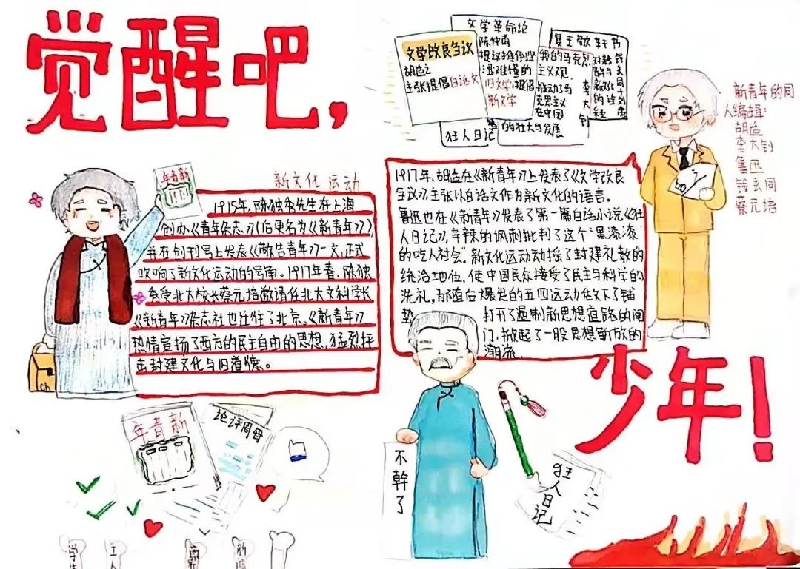 觉醒吧,
新文化运动
1915年,陈独秀先生在上海
创办《青年杂志》(后更名为《新青年》)
并在创刊号上发表《敬告青年》一文,正式
吹响了新文化运动的号角。1917年春,陈独
秀受北大校长蔡元培邀请任北大文科学长
《新青年》杂志社也迁往了北京。《新青年》
热情宣扬了西方的民主自由的思想,猛烈抨
击封建文化与旧道德。
年青新
文学改良刍议
胡适
主张提倡白话文
文学革命论
陈独秀
旧文学,提倡
新文学
狂人日记
我的马克思
主义观
李大钊
1917年,胡适在《新青年》上发表了《文学改良
刍议》,主张以白话文作为新文化的语言。
鲁迅也在《新青年》发表了第一篇白话小说《狂
人日记》,辛辣的讽刺批判了这个"黑漆漆
的吃人社会"。新文化运动动摇了封建礼教的
统治地位,使中国民众接受了民主与科学的
洗礼,为随后爆发的五四运动任下了铺
垫
打开了遏制新思想道路的闸
门,掀起了一股思想解放的
潮流
新青年的同
人编辑:
胡适
李大钊
鲁迅
钱玄同
蔡元培
少年!
年青新
论评周每
不幹了
狂人日记